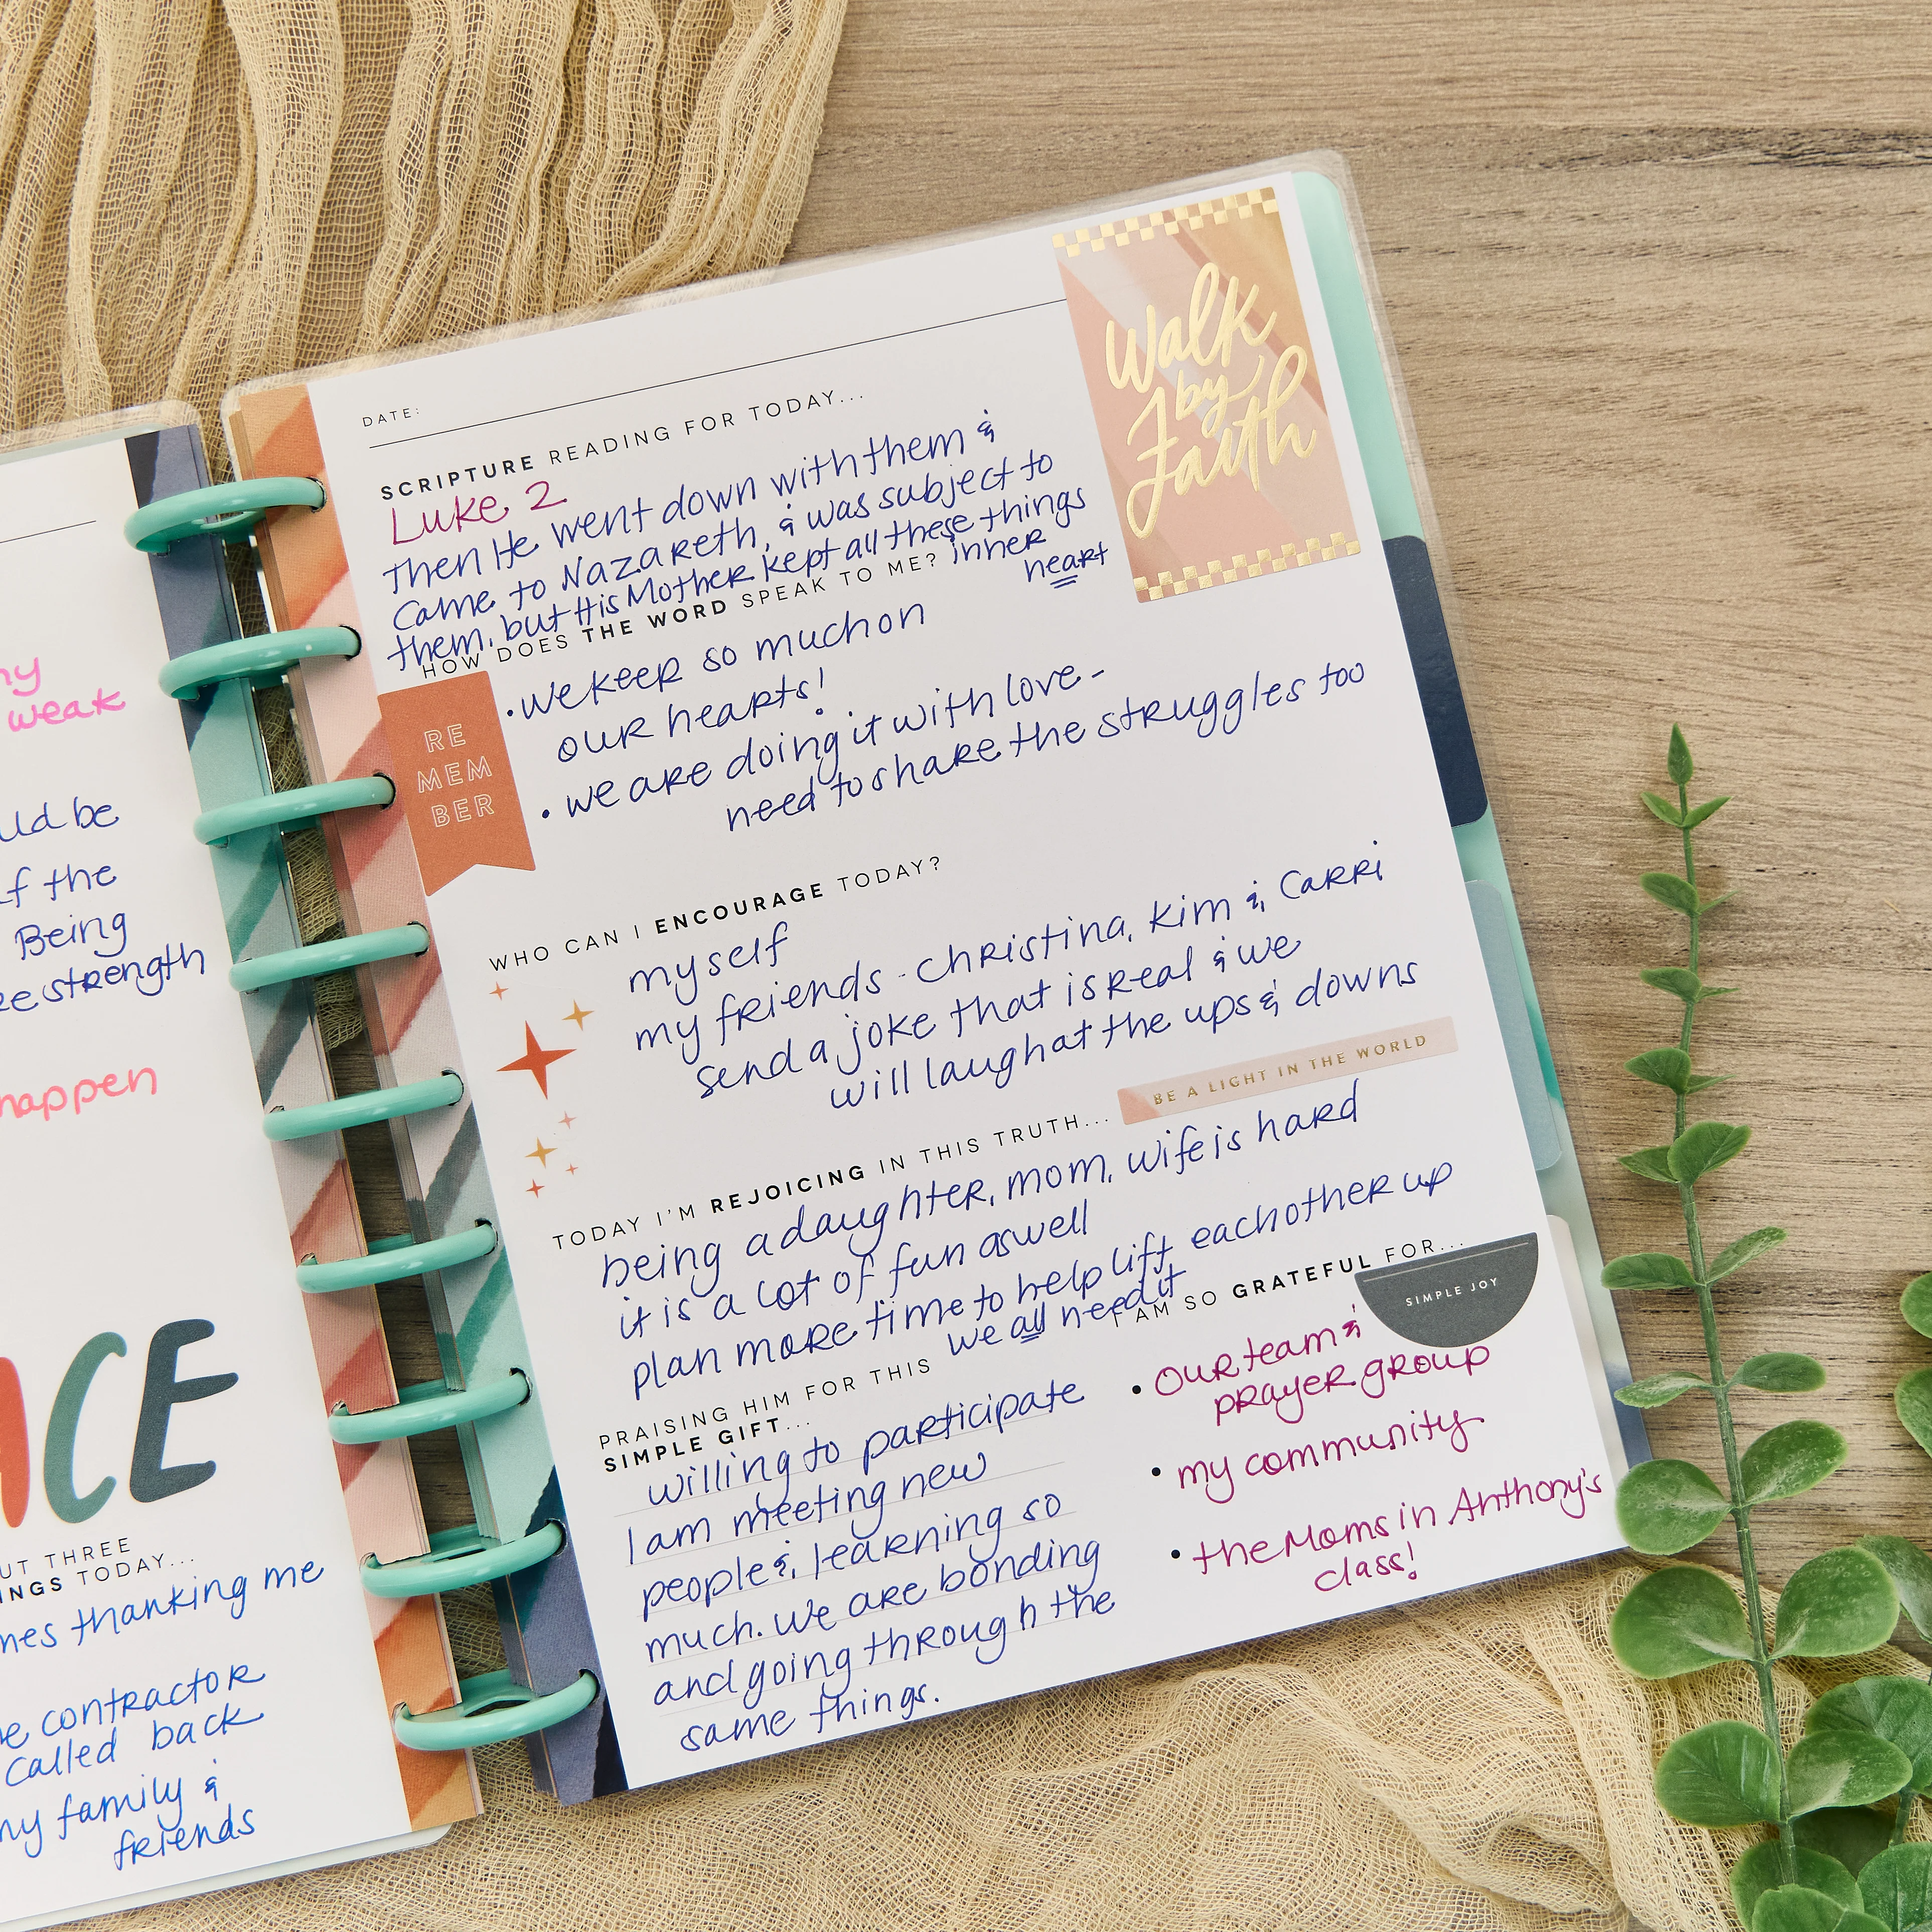 ny
weak
uld be
f the
Being
strength
happen
ACE
UT THREE
INGS TODAY...
mes thanking me
e contractor
called back
my family &
friends
DATE:
SCRIPTURE READING FOR TODAY...
Luke 2
Then He went down with them &
came to Nazareth, & was subject to
them, but His Mother kept all these things
inner
heart
Walk
by
Faith
HOW DOES THE WORD SPEAK TO ME?
RE
MEM
BER
• we keep so much on
our hearts!
• we are doing it with love -
need to share the struggles too
WHO CAN I ENCOURAGE TODAY?
myself
my friends - Christina, Kim & Carri
send a joke that is real & we
will laugh at the ups & downs
BE A LIGHT IN THE WORLD
TODAY I'M REJOICING IN THIS TRUTH...
being a daughter, mom, wife is hard
it is a lot of fun as well
plan more time to help lift each other up
we all need it
PRAISING HIM FOR THIS
SIMPLE GIFT...
willing to participate
I am meeting new
people &, learning so
much. We are bonding
and going through the
same things.
I AM SO GRATEFUL FOR...
SIMPLE JOY
• our team &
prayer group
• my community
• the Moms in Anthony's
class!